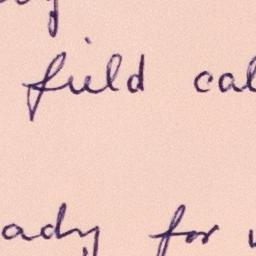 field cal
ady for